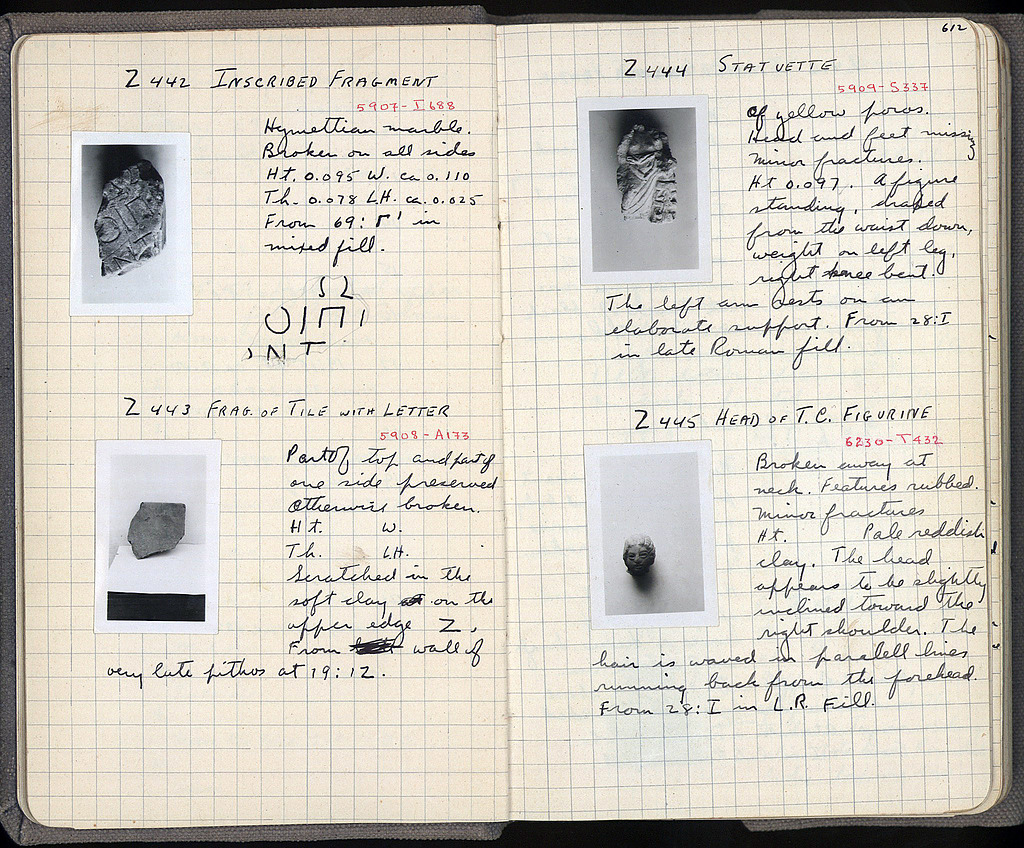 Z 442 INSCRIBED FRAGMENT
5907-I 688
Hymettian marble.
Broken on all sides
Ht. 0.095 W. ca 0.110
Th. 0.078 LH. ca. 0.025
From 69: Γ' in
mixed fill.
Ω
ΟΙΠΙ
ΝΤ
Z 443 FRAG. OF TILE WITH LETTER
5908-A173
Part of top and part of
one side preserved
Otherwise broken.
Ht. W.
Th. LH.
Scratched in the
soft clay on the
upper edge Z.
From wall of
very late pithos at 19:12.
612
Z 444 STATUETTE
5909-S337
Of yellow poros.
Head and feet missing
Minor fractures.
Ht 0.097. A figure
standing, draped
from the waist down,
weight on left leg,
right knee bent.
The left arm rests on an
elaborate support. From 28:I
in late Roman fill.
Z 445 HEAD OF T.C. FIGURINE
6230-T432
Broken away at
neck. Features rubbed.
Minor fractures
Ht. Pale reddish
clay. The head
appears to be slightly
inclined toward the
right shoulder. The
hair is waved in paralell lines
running back from the forehead.
From 28:I in L.R. Fill.